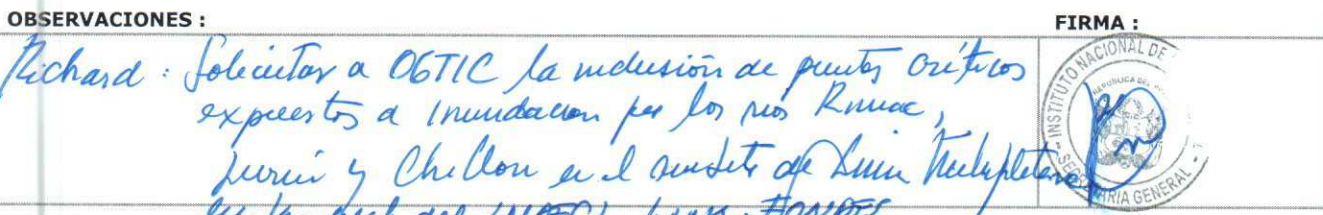 OBSERVACIONES :
FIRMA :
Richard : Solicitar a OGTIC la inclusión de puntos críticos
expuestos a Inundacion por los rios Rimac,
Lurin y Chillon en el de Lima Metropolitana
INSTITUTO NACIONAL DE
SECRETARIA GENERAL